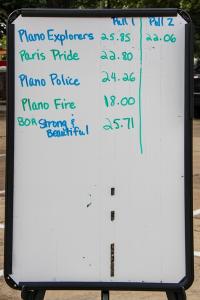 Pull 1 Pull 2
Plano Explorers 25.85 22.06
Paris Pride 22.80
Plano Police 24.26
Plano Fire 18.00
BOA Strong & 25.71
Beautiful